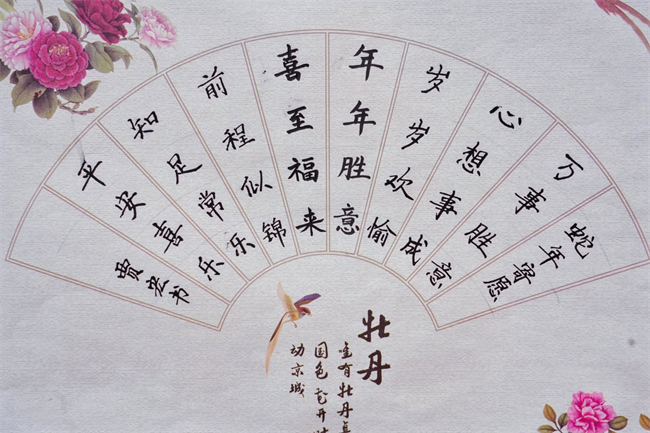 蛇年寄愿
万事胜意
心想事成
岁岁欢愉
年年胜意
喜至福来
前程似锦
知足常乐
平安喜乐
贾宏书
牡丹
唯有牡丹真
国色花开
动京城